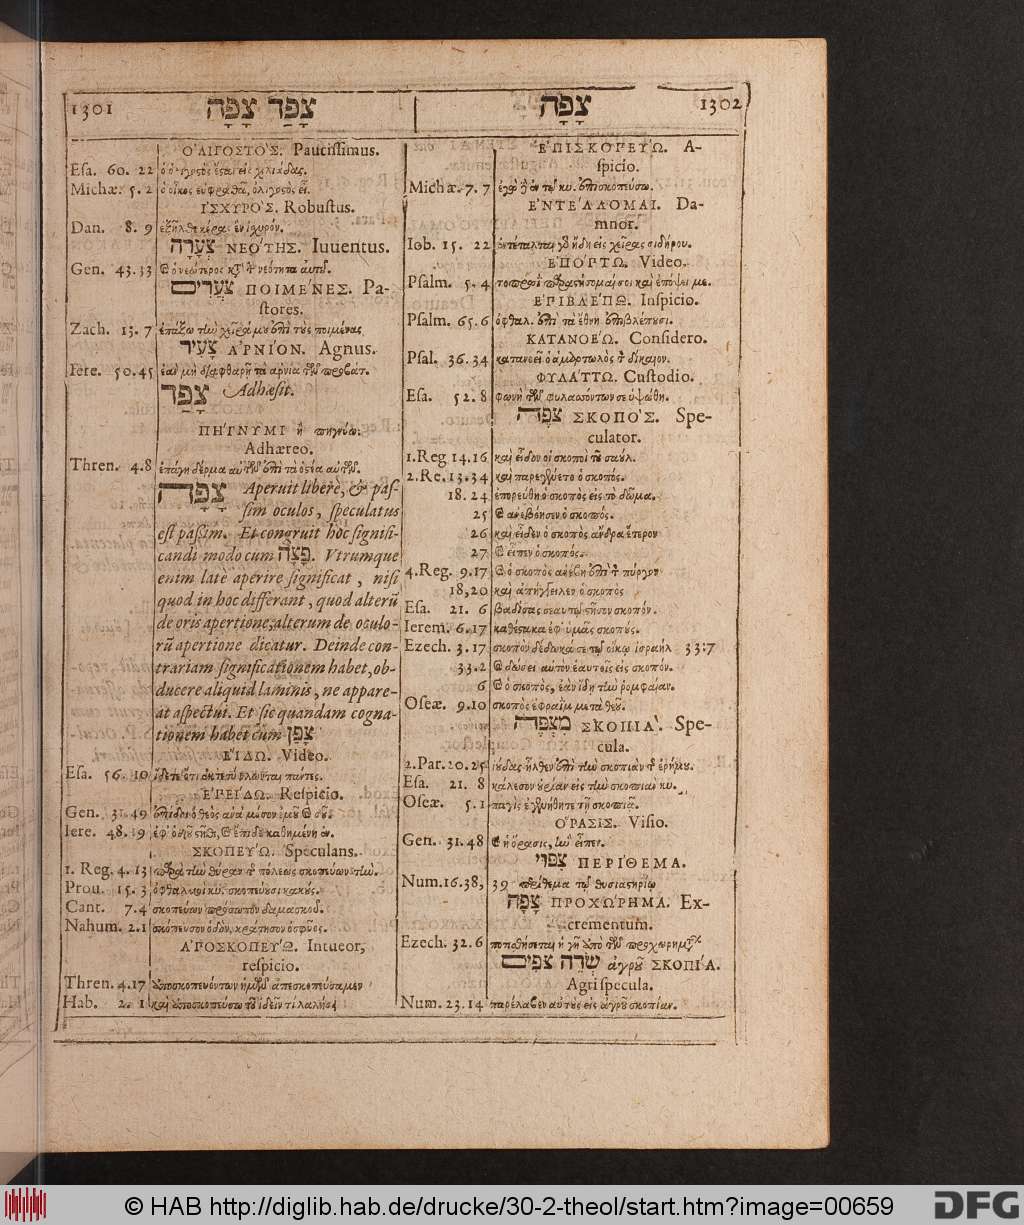 1301 צָפַד צָפָה
ὈΛΙΓΟΣΤΌΣ. Paucissimus.
Esa. 60. 22 ὁ ὀλιγοστὸς ἔσται εἰς χιλιάδας.
Michæ. 5. 2 ὁ οἶκος εὐφραθᾶ, ὀλιγοστὸς εἶ.
ἸΣΧΥΡΌΣ. Robustus.
Dan. 8. 9 ἐξῆλθε κέρας ἓν ἰσχυρόν.
צְעִרָה ΝΕΌΤΗΣ. Iuuentus.
Gen. 43. 33 ὁ νεώτερος κατὰ τὴν νεότητα αὐτοῦ.
צֹעֲרִים ΠΟΙΜΈΝΕΣ. Pa-
stores.
Zach. 13. 7 ἐπάξω τὴν χεῖρά μου ἐπὶ τοὺς ποιμένας
צָעִיר ἈΡΝΊΟΝ. Agnus.
Iere. 50.45 ἐὰν μὴ διαφθαρῇ τὰ ἀρνία τῶν προβάτ.
צָפַד Adhæsit.
ΠΗΓΝΥΜΙ ἢ πηγνύω.
Adhæreo.
Thren. 4.8 ἐπάγη δέρμα αὐτῶν ἐπὶ τὰ ὀστέα αὐτῶν.
צָפָה Aperuit liberè, & pas-
sim oculos, speculatus
est passim. Et congruit hoc signifi-
candi modo cum פָּצָה. Vtrumque
enim latè aperire significat, nisi
quod in hoc differant, quod alterū
de oris apertione, alterum de oculo-
rū apertione dicatur. Deinde con-
trariam significationem habet, ob-
ducere aliquid laminis, ne appare-
at aspectui. Et sic quandam cogna-
tionem habet cum צָפַן
ΕἼΔΩ. Video.
Esa. 56. 10 ἴδετε ὅτι ἐκτετύφλωνται πάντες.
ἘΡΕΊΔΩ. Respicio.
Gen. 31. 49 ἐπίδοι ὁ θεὸς ἀνὰ μέσον ἐμοῦ σοῦ.
Iere. 48. 19 ἐφ᾽ ὁδοῦ στῆθι, ἔπιδε καθημένη ἐν.
ΣΚΟΠΕΎΩ. Speculans.
1. Reg. 4. 13 παρὰ τὴν θύραν τῆς πόλεως σκοπεύων τὴν.
Prou. 15. 3 ὀφθαλμοὶ κυ. σκοπεύουσι κακούς.
Cant. 7. 4 σκοπεύων πρόσωπον δαμασκοῦ.
Nahum. 2. 1 σκόπευσον ὁδὸν, κράτησον ὀσφύος.
ἈΠΟΣΚΟΠΕΎΩ. Intueor,
respicio.
Thren. 4.17 ἀποσκοπευόντων ἡμῶν ἀπεσκοπεύσαμεν
Hab. 2. 1 καὶ ἀποσκοπεύσω τοῦ ἰδεῖν τί λαλήσει
צָפָה 1302
ἘΠΙΣΚΟΠΕΎΩ. A-
spicio.
Michæ. 7. 7 ἐγὼ δὲ ἐν τῷ κυ. ἐπισκοπεύσω.
ἘΝΤΈΛΛΟΜΑΙ. Da-
mnor.
Iob. 15. 22 ἐντέταλται γὰρ ἤδη εἰς χεῖρας σιδήρου.
ἘΠΌΡΤΩ. Video.
Psalm. 5. 4 τοπρωῒ παραστήσομαί σοι καὶ ἐπόψει με.
ἘΠΙΒΛΈΠΩ. Inspicio.
Psalm. 65. 6 ὀφθαλ. ἐπὶ τὰ ἔθνη ἐπιβλέπουσι.
ΚΑΤΑΝΟΈΩ. Considero.
Psal. 36. 34 κατανοεῖ ὁ ἁμαρτωλὸς τὸν δίκαιον.
ΦΥΛΆΤΤΩ. Custodio.
Esa. 52. 8 φωνὴ τῶν φυλασσόντων σε ὑψώθη.
צֹפֶה ΣΚΟΠΌΣ. Spe-
culator.
1. Reg 14.16 καὶ εἶδον οἱ σκοποὶ τοῦ σαούλ.
2. Re. 13. 34 καὶ παρεγένετο ὁ σκοπός.
18. 24 ἐπορεύθη ὁ σκοπὸς εἰς τὸ δῶμα.
25 ἀνεβόησεν ὁ σκοπός.
26 καὶ εἶδεν ὁ σκοπὸς ἄνδρα ἕτερον
27 εἶπεν ὁ σκοπός.
4. Reg. 9. 17 ὁ σκοπὸς ἀνέβη ἐπὶ τὸν πύργον
18, 20 καὶ ἀπήγγειλεν ὁ σκοπὸς
Esa. 21. 6 βαδίσας σεαυτῷ στῆσον σκοπόν.
Ierem. 6. 17 καθέστακα ἐφ᾽ ὑμᾶς σκοπούς.
Ezech. 3. 17 σκοπὸν δέδωκά σε τῷ οἴκῳ ἰσραήλ 33:7
33. 2 δώσει αὐτὸν ἑαυτοῖς εἰς σκοπόν.
6 ὁ σκοπὸς, ἐὰν ἴδῃ τὴν ῥομφαίαν.
Oseæ. 9. 10 σκοπὸς ἐφραῒμ μετὰ θεοῦ.
מִצְפֶּה ΣΚΟΠΙΆ. Spe-
cula.
2. Par. 20. 25 ἰούδας ἦλθεν ἐπὶ τὴν σκοπιὰν τῆς ἐρήμου.
Esa. 21. 8 κάλεσον οὐρίαν εἰς τὴν σκοπιὰν κυ.
Oseæ. 5. 1 παγὶς ἐγενήθητε τῇ σκοπιᾷ.
ὍΡΑΣΙΣ. Visio.
Gen. 31. 48 ἡ ὅρασις, ἣν εἶπεν.
צִפּוּי ΠΕΡΊΘΕΜΑ.
Num. 16. 38, 39 περίθεμα τῷ θυσιαστηρίῳ
צָפָה ΠΡΟΧΏΡΗΜΑ. Ex-
crementum.
Ezech. 32. 6 ποτισθήσεται ἡ γῆ ἀπὸ τῶν προχωρημάτ.
שְׂדֵה צֹפִים ἀγροῦ ΣΚΟΠΊΑ.
Agri specula.
Num. 23. 14 παρέλαβεν αὐτοὺς εἰς ἀγροῦ σκοπίαν.
© HAB http://diglib.hab.de/drucke/30-2-theol/start.htm?image=00659
DFG